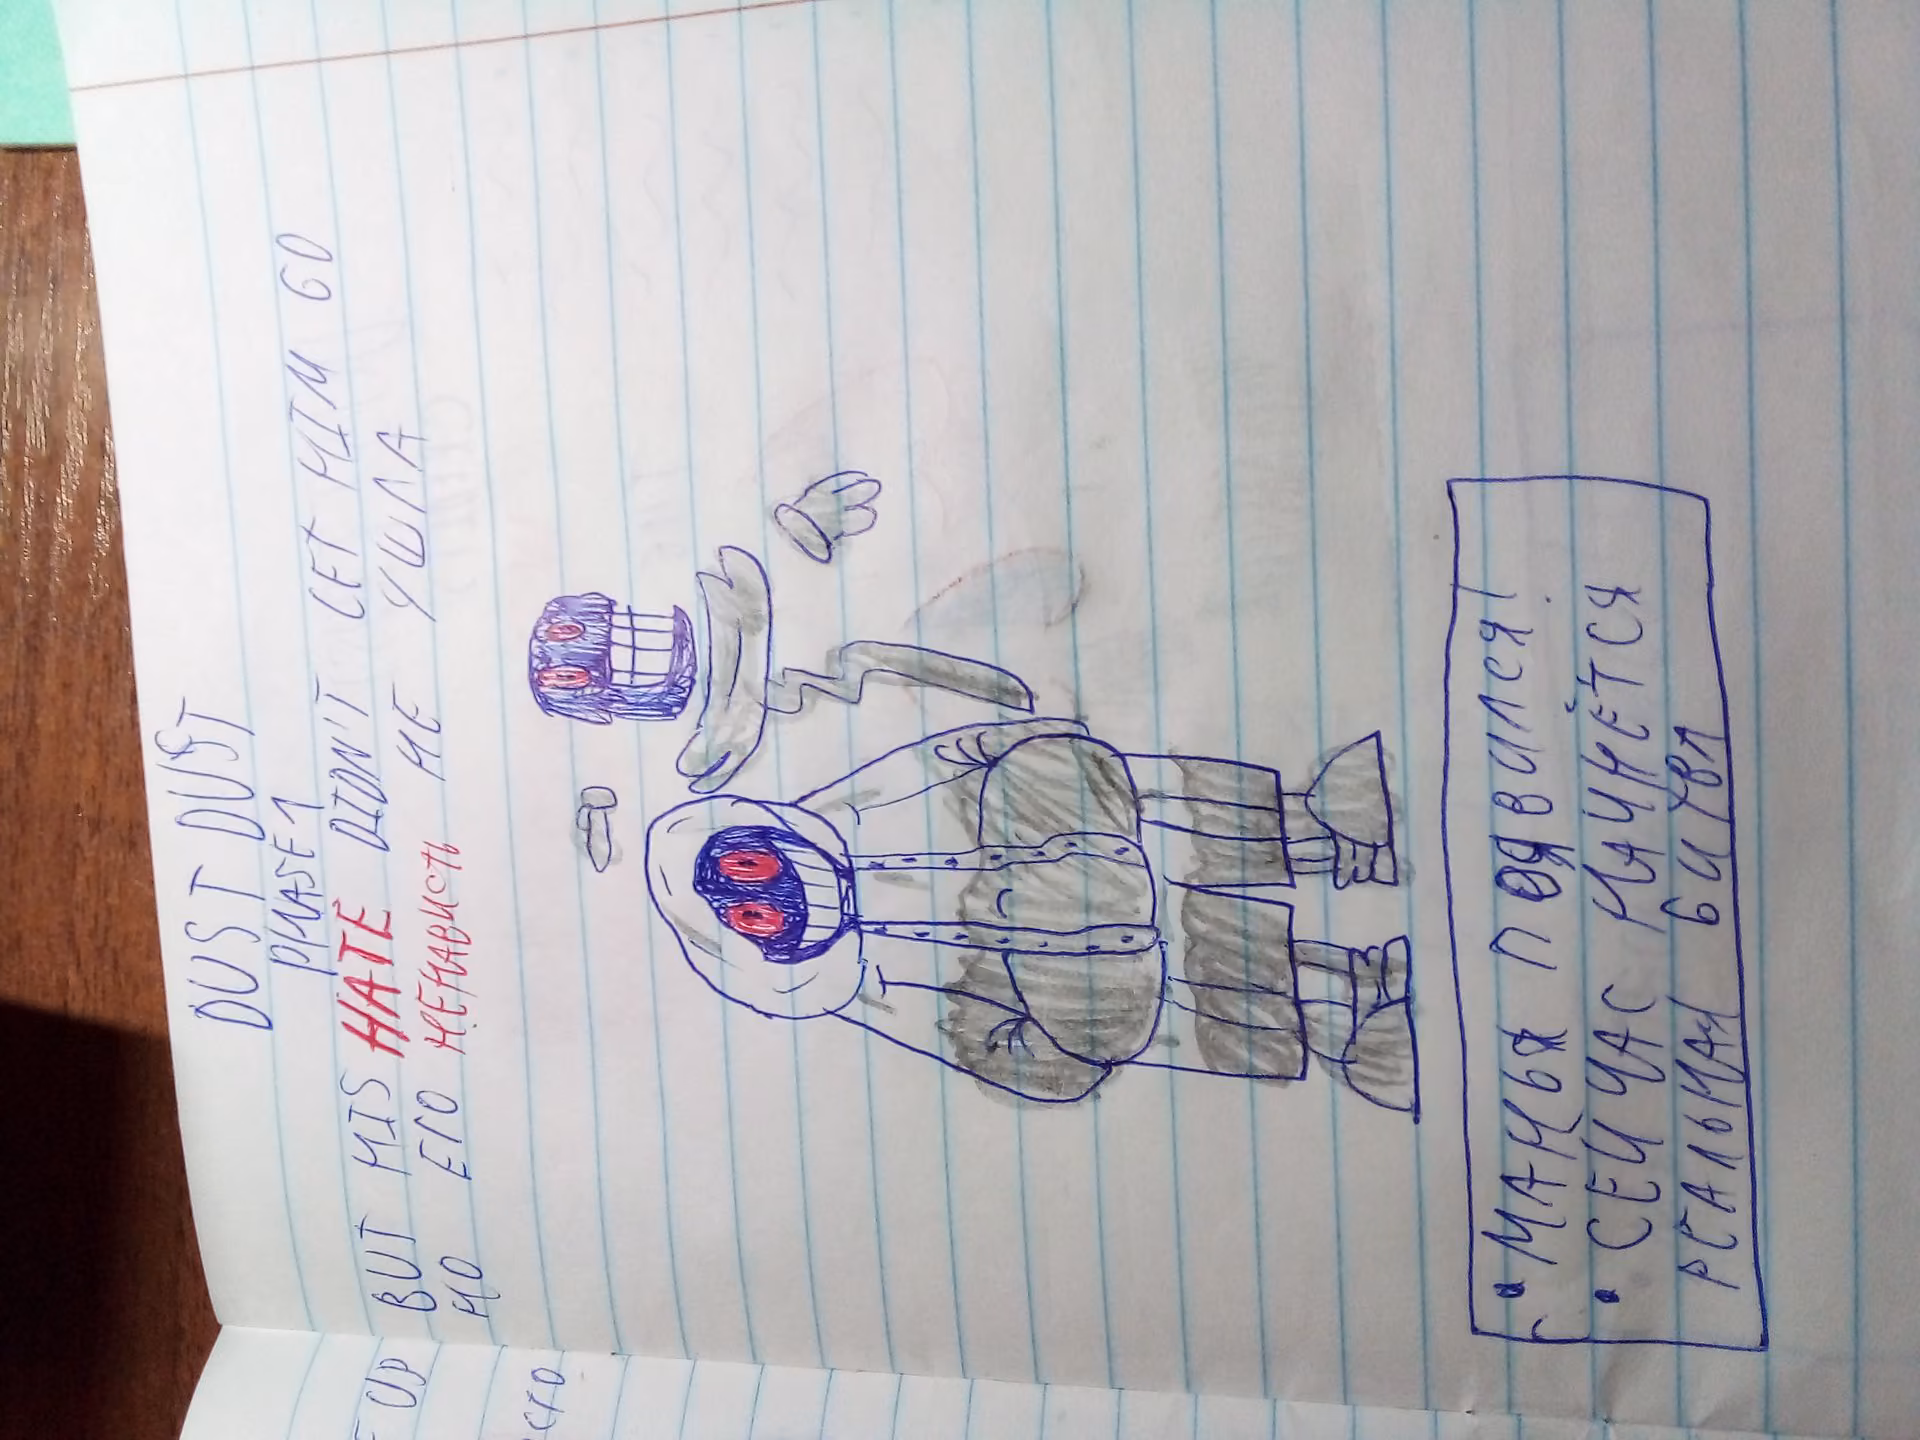 DUST DUST
PHASE 1
BUT HIS HATE DIDN'T GET HIM GO
НО ЕГО НЕНАВИСТЬ НЕ УШЛА
• МАНЬЯ ПОЯВИЛСЯ!
• СЕЙЧАС НАЧНЁТСЯ
РЕАЛЬНАЯ БИТВА